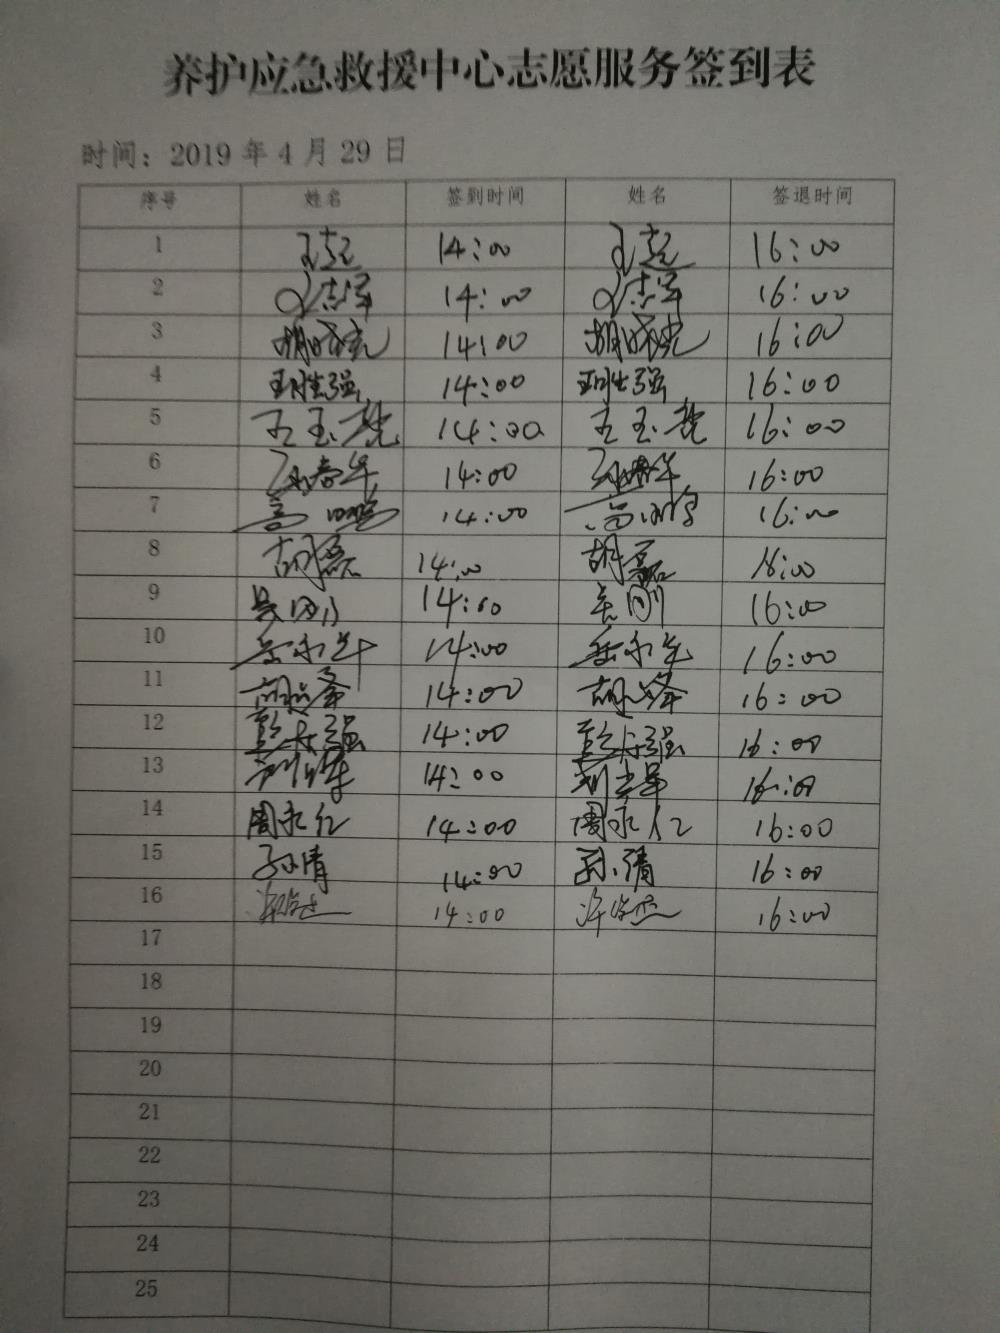 养护应急救援中心志愿服务签到表
时间：2019 年 4 月 29 日
序号 姓名 签到时间 姓名 签退时间
1 王超 14:00 王超 16:00
2 14:00 16:00
3 胡晓亮 14:00 胡晓亮 16:00
4 王胜强 14:00 王胜强 16:00
5 王玉 14:00 王玉 16:00
6 14:00 16:00
7 高 14:00 高 16:00
8 胡磊 14:00 胡磊 16:00
9 吴刚 14:00 吴刚 16:00
10 岳永年 14:00 岳永年 16:00
11 胡 峰 14:00 胡 峰 16:00
12 彭 强 14:00 彭 强 16:00
13 刘 军 14:00 刘 军 16:00
14 周永仁 14:00 周永仁 16:00
15 孙倩 14:00 孙倩 16:00
16 14:00 16:00
17
18
19
20
21
22
23
24
25